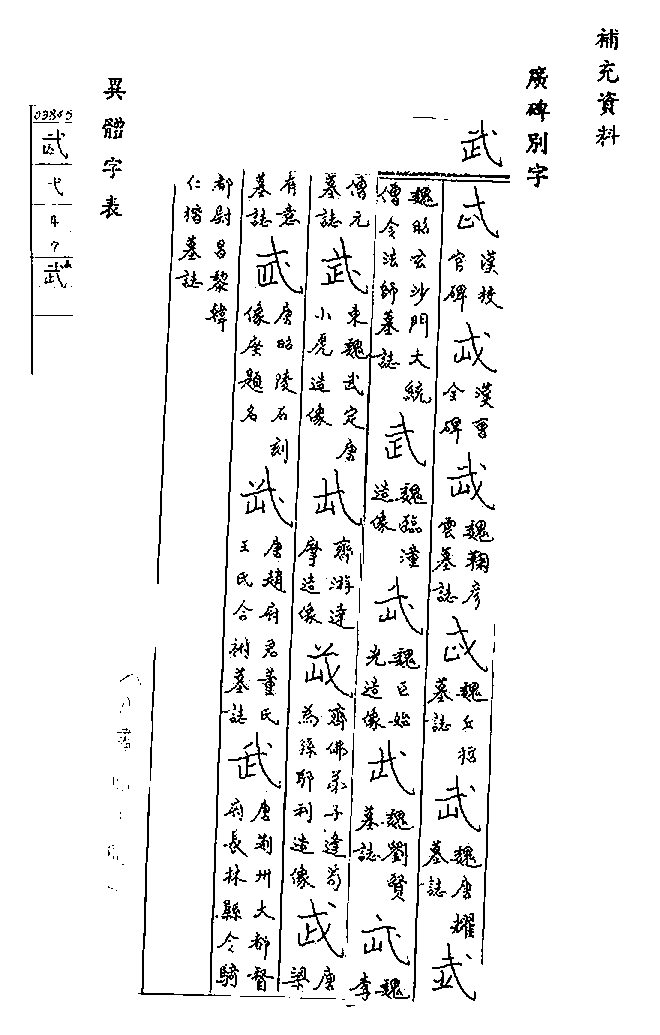 補充資料
廣碑別字
武
武 漢校官碑 武 漢曹全碑 武 魏鞠彦雲墓誌 武 魏丘哲墓誌 武 魏唐耀墓誌 武
魏昭玄沙門大統僧令法師墓誌 武 魏臨潼造像 武 魏巨始光造像 武 魏劉賢墓誌 武 魏李
傅元墓誌 武 東魏武定唐小虎造像 武 齊游達摩造像 武 齊佛弟子逢苟為孫耶利造像 武 唐梁
有意墓誌 武 唐昭陵石刻像座題名 武 唐趙府君董氏王氏合祔墓誌 武 唐荊州大都督府長林縣令騎
都尉昌黎韓仁楷墓誌
異體字表
03865
武
弋
4
7
武